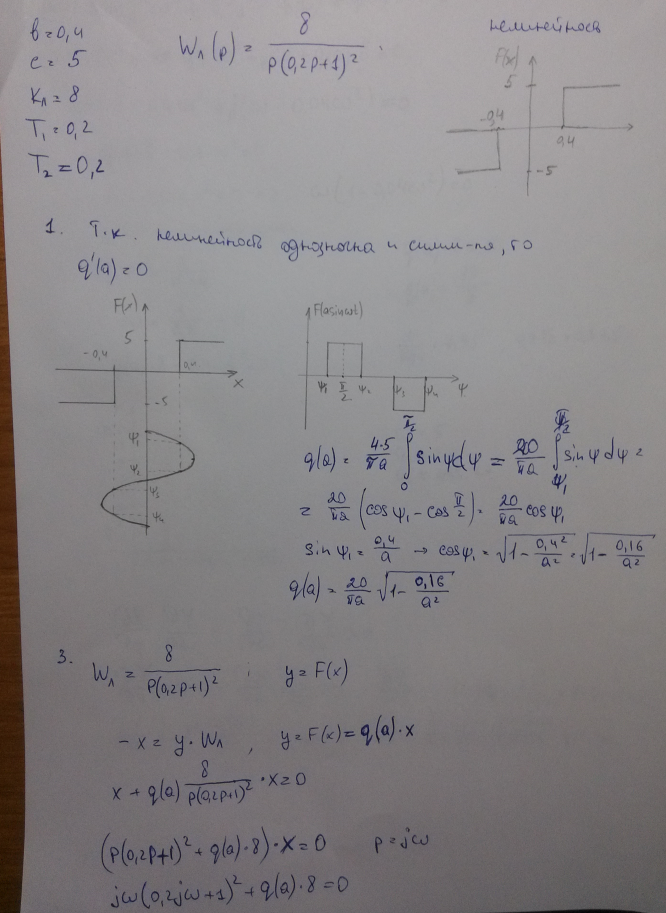 в=0,4
c = 5
Kл=8
T₁=0,2
T₂=0,2
Wл(p) = 8 / p(0,2p+1)² ;
нелинейность
F(x)
5
-0,4
0,4
-5
1. Т.к. нелинейность однозначна и симм-ая, то
q'(a)=0
F(x)
5
-0,4
0,4
x
-5
ψ₁
ψ₂
ψ₃
ψ₄
F(asinωt)
ψ₁ π/2 ψ₂ ψ₃ ψ₄ ψ
q(a) = 4·5/πa ∫₀^π/2 sinψdψ = 20/πa ∫ψ₁^π/2 sinψdψ =
= 20/πa (cosψ₁ - cos π/2) = 20/πa cosψ₁
sinψ₁ = 0,4/a → cosψ₁ = √(1 - 0,4²/a²) = √(1 - 0,16/a²)
q(a) = 20/πa √(1 - 0,16/a²)
3. Wл = 8 / p(0,2p+1)² ; y = F(x)
-x = y·Wл , y = F(x) = q(a)·x
x + q(a) 8 / p(0,2p+1)² · x = 0
(p(0,2p+1)² + q(a)·8)·x = 0 p = jω
jω(0,2jω+1)² + q(a)·8 = 0